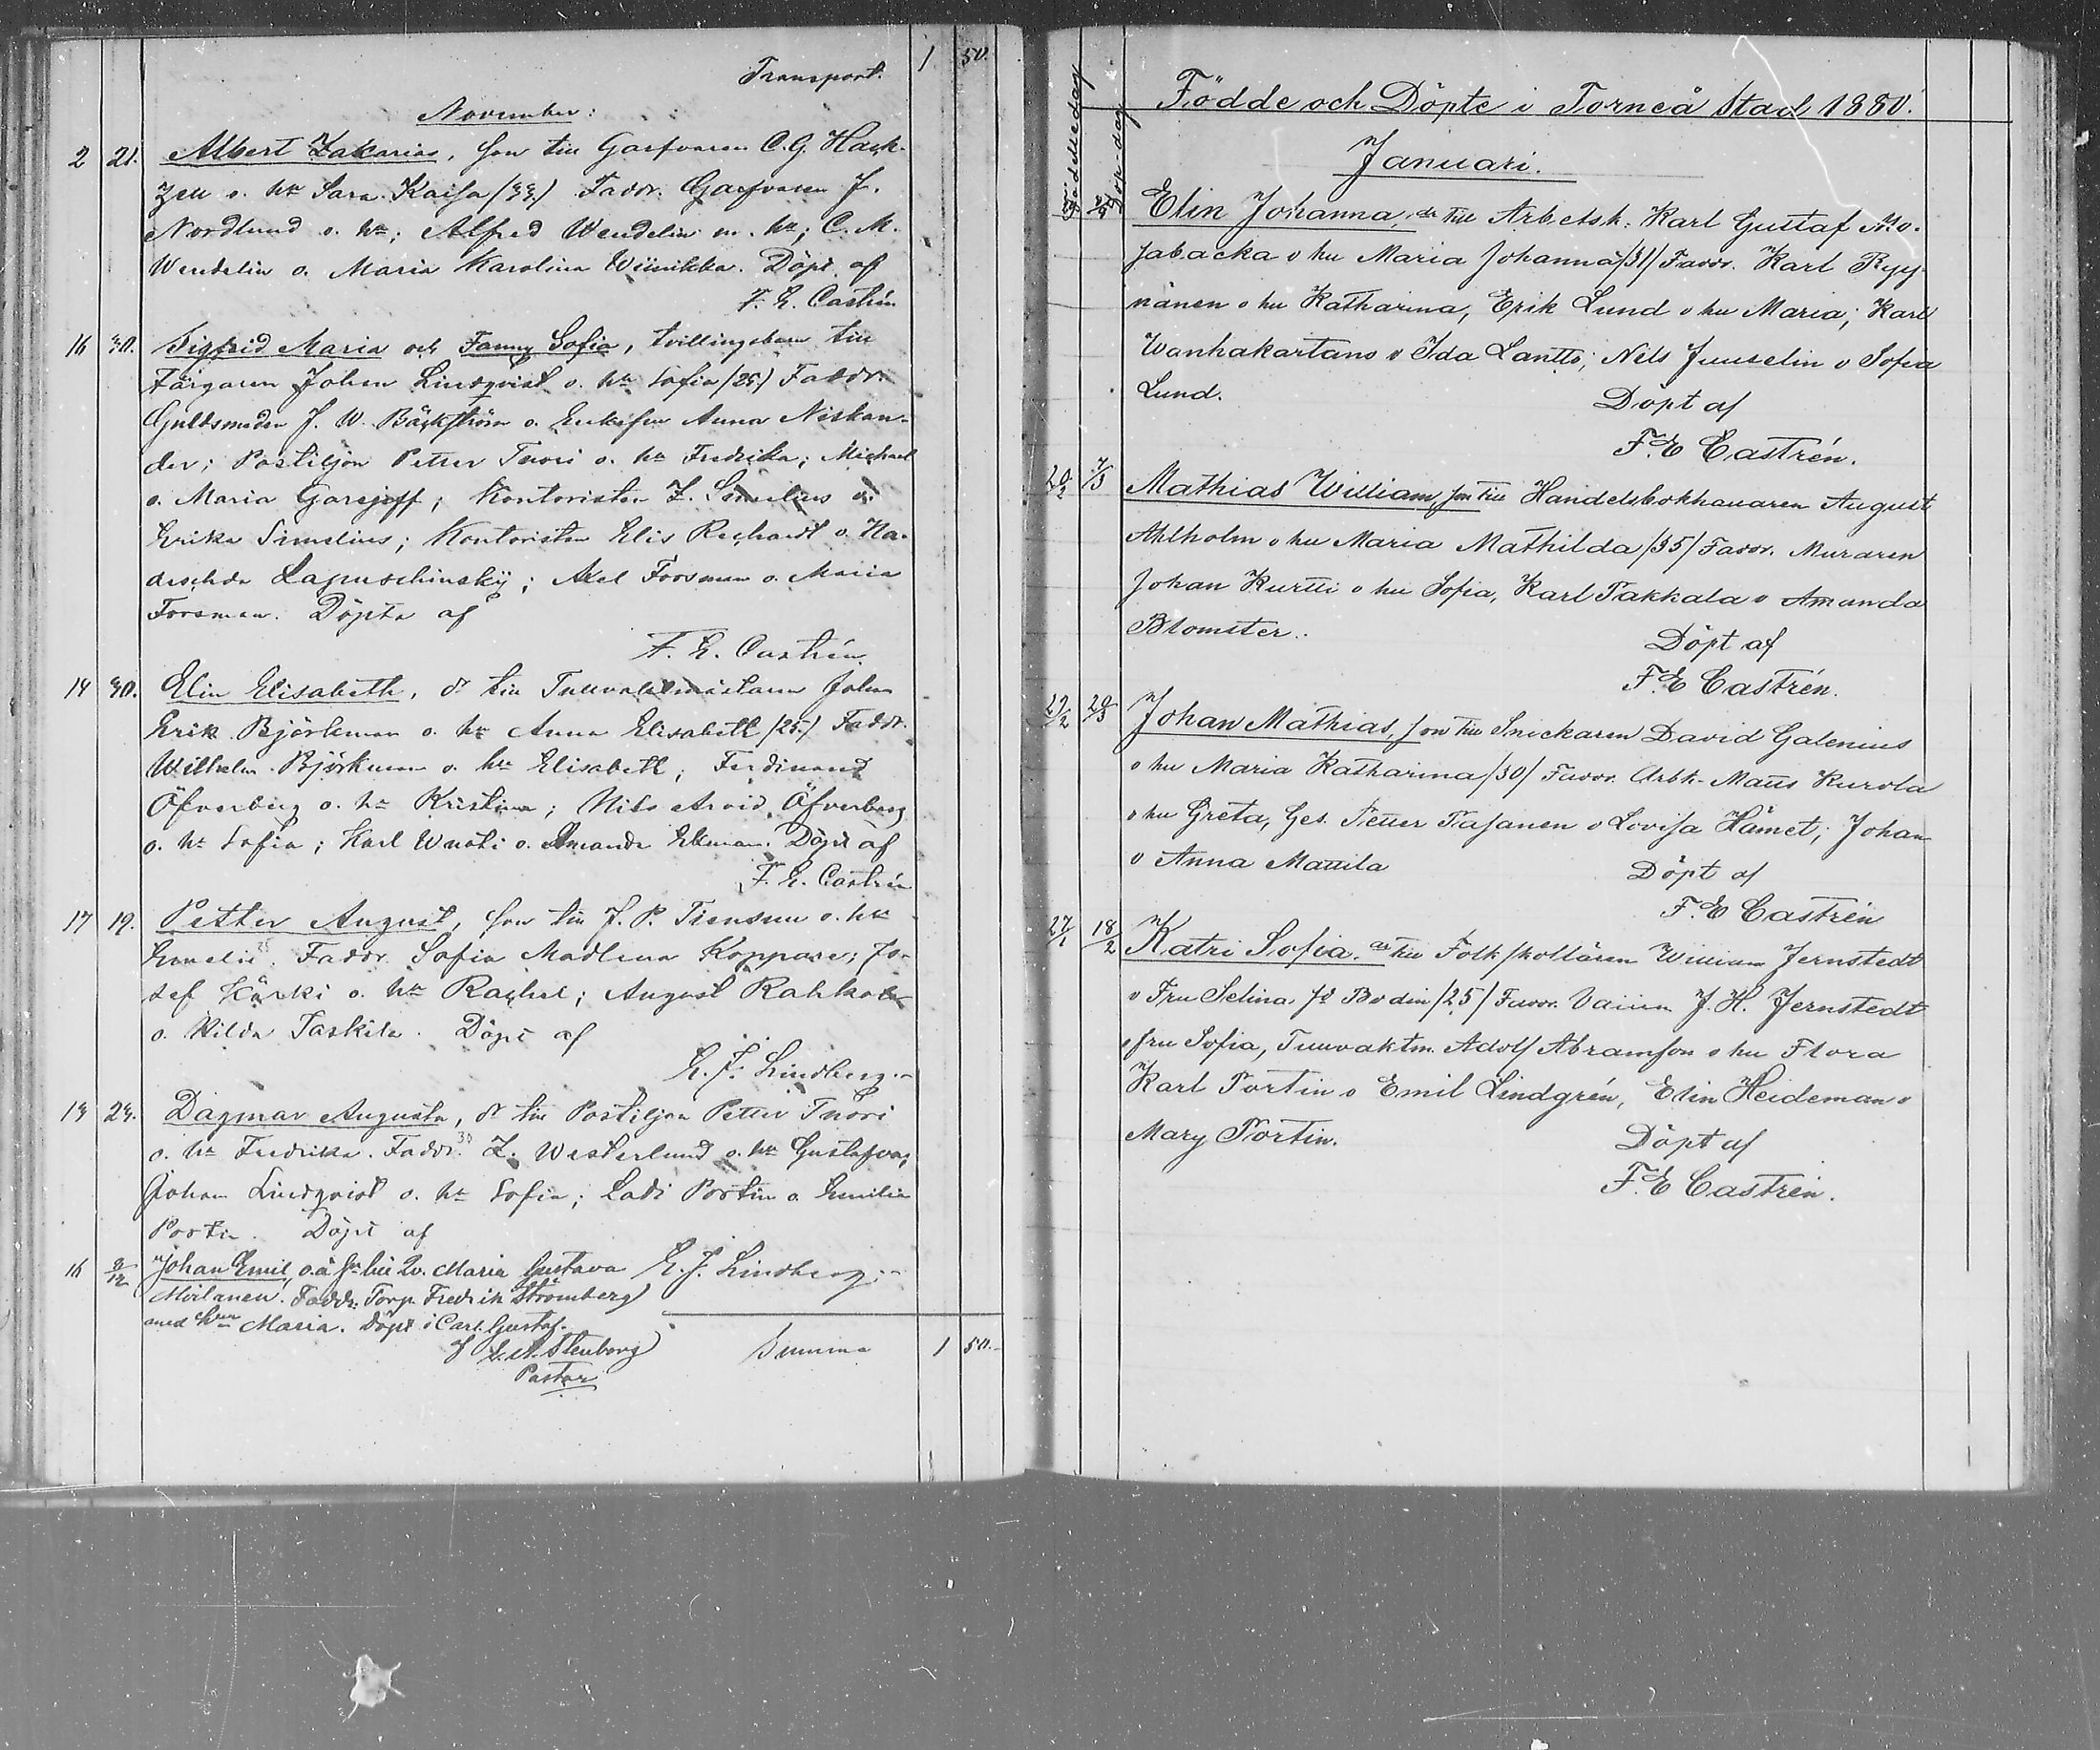 Transport. 1 50.
November:
2 21. Albert Zakarias, son till Garfvaren C. G. Hack-
zell o. hu Sara Kaisa /33/ Faddr. Garfvaren J.
Nordlund o. hu; Alfred Wendelin m. hu; C. M.
Wendelin o. Maria Karolina Wiinikka. Döpt af
F. E. Castrén
16 30. Sigfrid Maria och Fanny Sofia, tvillingebarn till
Färgaren Johan Lindqvist o. hu Sofia /25/ Faddr.
Guldsmeden J. W. Bäckström o. Enkefru Anna Niskan-
der; Postiljon Petter Tuori o. hu Fredrika; Michael
o. Maria Garejeff; Kontoristen Z. Simelius o.
Erika Simelius; Kontoristen Elis Rechardt o. Na-
deschda Lapuschinskij; Axel Forsman o. Maria
Forsman. Döpta af
F. E. Castrén.
14 30. Elin Elisabeth, dr till Tullvaktmästaren Johan
Erik Björkman o. hu Anna Elisabeth /25/ Faddr.
Wilhelm Björkman o. hu Elisabeth; Ferdinand
Öfverberg o. hu Kristina; Nils Arvid Öfverberg
o. hu Sofia; Karl Wuoti o. Amanda Ekman. Döpt af
F. E. Castrén
17 19. Petter August, son till J. P. Tiensuu o. hu
Emelie 35. Faddr. Sofia Madlena Koppare; Jo-
sef Kärki o. hu Rachel; August Rahkola
o. Hilda Taskila. Döpt af
E. J. Lindberg.
13 23. Dagmar Augusta, dr till Postiljon Petter Tuori
o. hu Fredrika. Faddr. Z. Westerlund o. hu Gustafva;
Johan Lindqvist o. hu Sofia; Ladi Portin o. Emilia
Portin. Döpt af
16 8/12 Johan Emil, o.ä. sn till Qv. Maria Gustava E. J. Lindberg.
Moilanen. Faddr. Torp. Fredrik Strömberg
med hun Maria. Döpt i Carl Gustaf.
Stenborg Summa 1 50.
Pastor
Födelsedag
Döp-dag
Födde och Döpte i Torneå Stad 1880.
Januari.
Elin Johanna, dr till Arbetsk. Karl Gustaf Mo-
jabacka o hu Maria Johanna /31/ Faddr. Karl Ryy-
nänen o hu Katharina, Erik Lund o hu Maria; Karl
Wanhakartano o Ida Lantto; Nils Junselin o Sofia
Lund. Döpt af
F. E Castrén.
20/2 7/3 Mathias William, son till Handelsbokhållaren August
Ahlholm o hu Maria Mathilda /35/ Faddr. Muraren
Johan Kurtti o hu Sofia, Karl Takkala o Amanda
Blomster. Döpt af
F. E Castrén.
29/2 20/3 Johan Mathias, son till Snickaren David Galenius
o hu Maria Katharina /30/ Faddr. Arbk. Matts Kurvla
o hu Greta, Ges. Petter Pasanen o Lovisa Hämet; Johan
o Anna Mattila Döpt af
F. E Castrén
27/1 18/2 Katri Sofia, dr till Folkskolläraren William Jernstedt
o Fru Selina fd Bodin /25/ Faddr. J. H. Jernstedt
o fru Sofia, Tullvaktm. Adolf Abramson o hu Flora
Karl Portin o Emil Lindgrén, Elin Heideman o
Mary Portin. Döpt af
F. E Castrén.